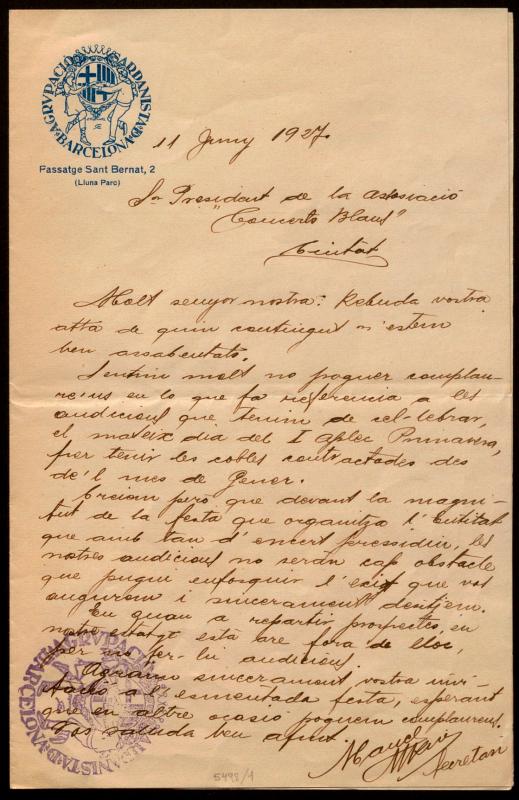 AGRVPACIO SARDANISTA DE BARCELONA
Passatge Sant Bernat, 2
(Lluna Parc)
11 Juny 1927
Sr President de la associació
"Concerts Blaus"
Ciutat
Molt senyor nostra: Rebuda vostra
atta de quin contingut n'estem
ben assabentats.
Sentim molt no poguer complau-
re'us en lo que fa referencia a les
audicions que tenim de cel-lebrar,
el mateix dia del I Aplec Primavera,
per tenir les cobles contractades des
de'l mes de Gener.
Creiem però que devant la magni-
tut de la festa que organitza l'entitat
que amb tan d'encert pressidiu, les
nostres audicions no seràn cap obstacle
que pugui enfosquir l'exit que vos
augurem i sincerament desitjem.
En quan a repartir prospectes, en
nostre estatge està are fora de lloc,
per no fer-hi audicions.
Agraim sincerament vostra invi-
tació a l'esmentada festa, esperant
que en altre ocasió poguem complaurens.
Vos saluda ben atent.
Manel
Secretari
AGRVPACIO SARDANISTA D BARCELONA
5498/1